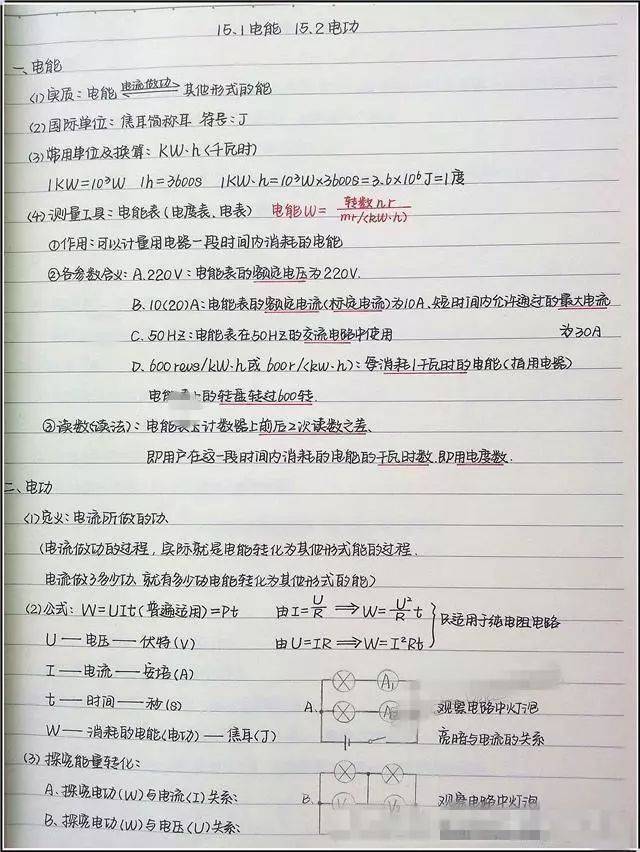 15.1电能 15.2电功
一、电能
(1)实质：电能 电流做功 其他形式的能
(2)国际单位：焦耳简称耳 符号：J
(3)常用单位及换算：KW·h(千瓦时)
1KW=10³W 1h=3600S 1KW·h=10³W×3600S=3.6×10⁶J=1度
(4)测量工具：电能表(电度表、电表) 电能W= 转数nr/mr/(kW·h)
①作用：可以计量用电器一段时间内消耗的电能
②各参数含义：A.220V：电能表的额定电压为220V.
B.10(20)A：电能表的额定电流(标定电流)为10A、短时间内允许通过的最大电流
为30A
C.50HZ：电能表在50HZ的交流电路中使用
D.600rews/kW·h或600r/(kW·h)：每消耗1千瓦时的电能(指用电器)
电能 上的转盘转过600转.
③读数(读法)：电能表上计数器上前后2次读数之差、
即用户在这一段时间内消耗的电能的千瓦时数.即用电度数.
二、电功
(1)定义：电流所做的功、
(电流做功的过程，实际就是电能转化为其他形式能的过程.
电流做了多少功，就有多少功电能转化为其他形式的能)
(2)公式：W=UIt(普遍适用)=Pt 由I=U/R ⟹ W=U²/R t
U — 电压 — 伏特(V) 由U=IR ⟹ W=I²Rt
只适用于纯电阻电路
I — 电流 — 安培(A)
t — 时间 — 秒(s)
W — 消耗的电能(电功) — 焦耳(J)
A. A₁ 观察电路中灯泡
亮暗与电流的关系
(3)探究能量转化：
A、探究电功(W)与电流(I)关系：
B. 观察电路中灯泡
B、探究电功(W)与电压(U)关系：